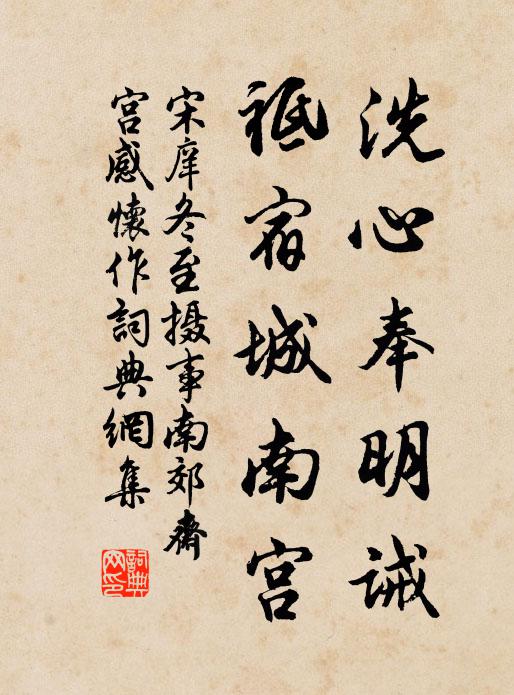 洗心奉明诫
祗宿城南宫
宋庠冬至摄事南郊斋
宫感懷作詞典網集
詞典网印